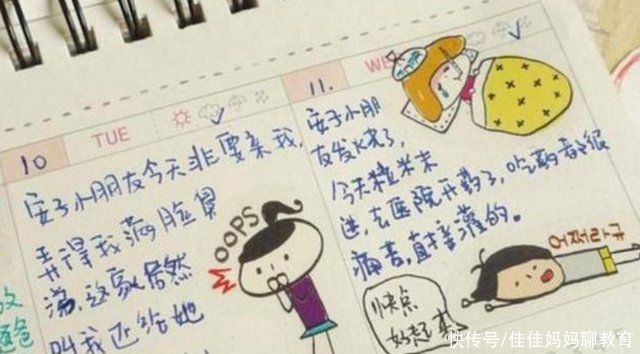 10
TUE
安子小朋友今天非要亲我,
弄得我满脸鼻
涕,这家伙居然
叫我还给她
OOPS
11.
WE
安子小朋
友发烧了,
今天粒米未
进,去医院开药了,吃药都很
痛苦,直接灌的。
어쩌라구
快点
好起来
快传号/佳佳妈妈聊教育